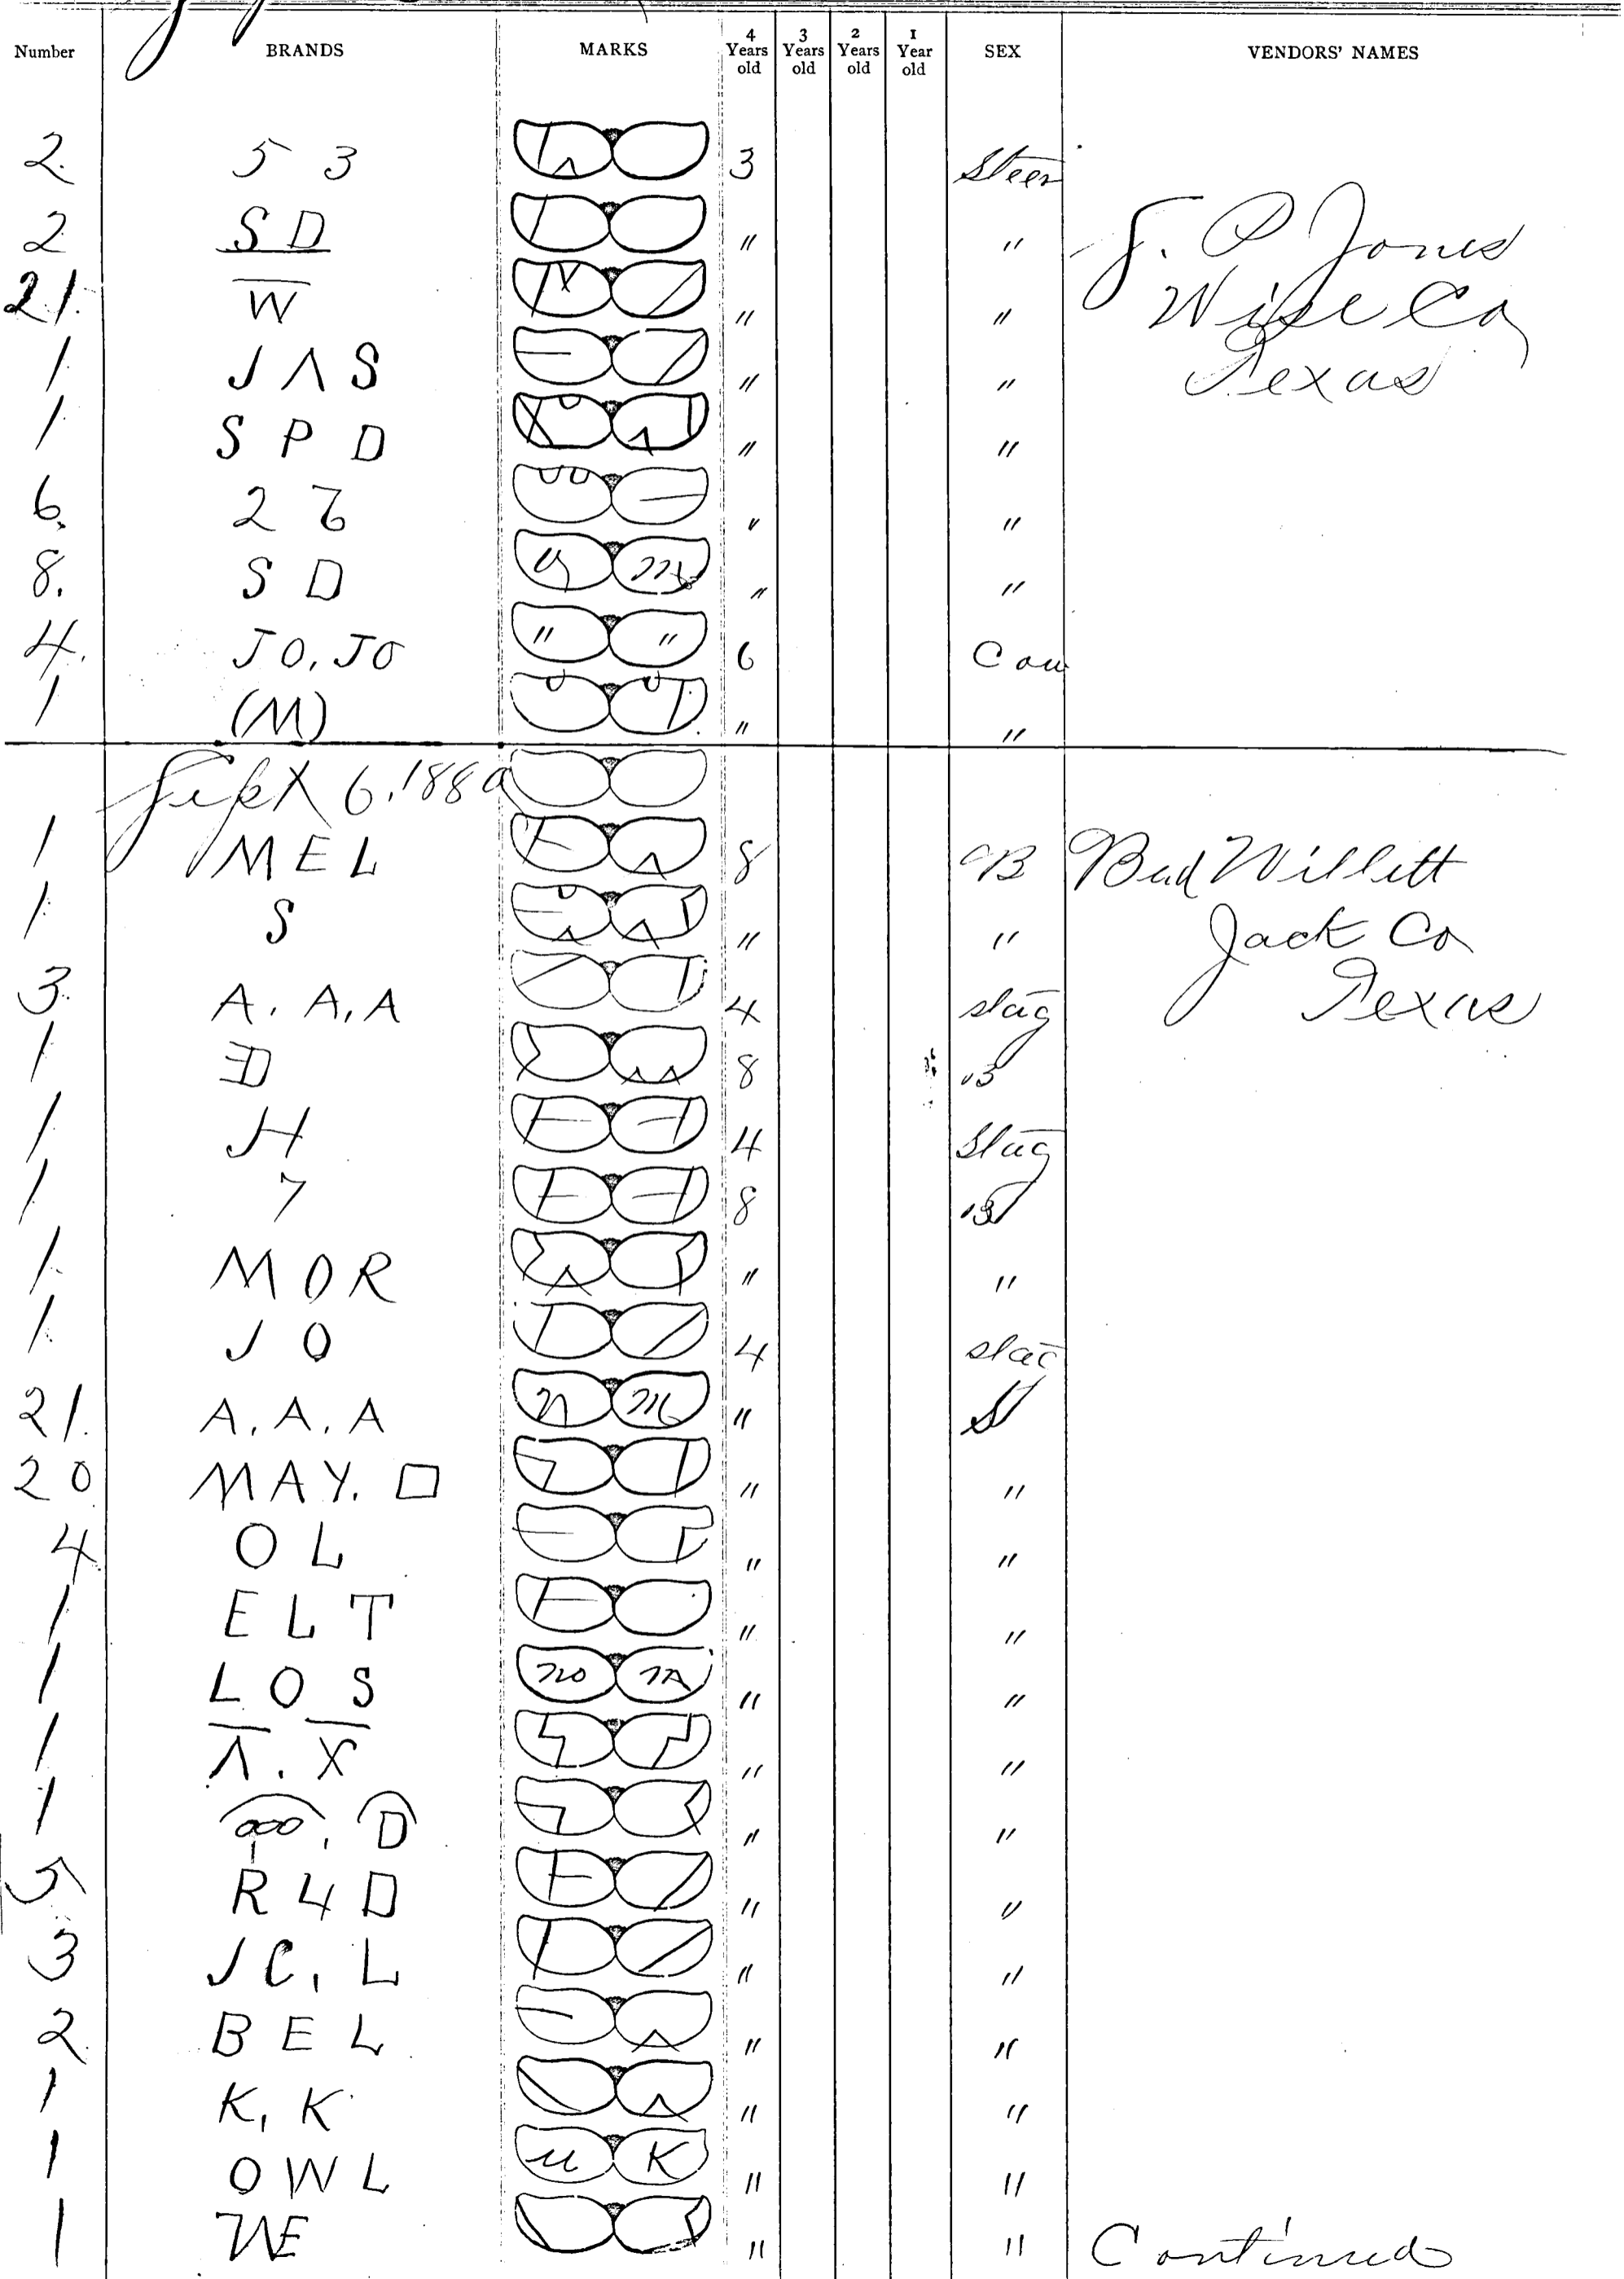 Number BRANDS MARKS 4 Years old 3 Years old 2 Years old 1 Year old SEX VENDORS' NAMES
2. 5 3 3 Steer
2 S D " " J. P Jones
21. W " " Wise Co
1 J A S " " Texas
1 S P D " "
6. 2 6 " "
8. S D " "
4. JO, JO " " 6 Cow
1 (M) " "
Sept 6, 1880
1 MEL 8 B Bud Willett
1 S " " Jack Co
3. A. A, A 4 stag Texas
1 D 8 B
1 JH 4 Stag
1 7 8 B
1. M O R " "
1. J O 4 stag
21. A. A. A M " St
20 MAY. □ " "
4 O L " "
1 E L T " "
1 L O S no " "
1 Λ. X " "
1 D " "
5 R 4 D " "
3 J C, L " "
2 B E L " "
1 K, K " "
1 O W L U K " "
1 WE " " Continued